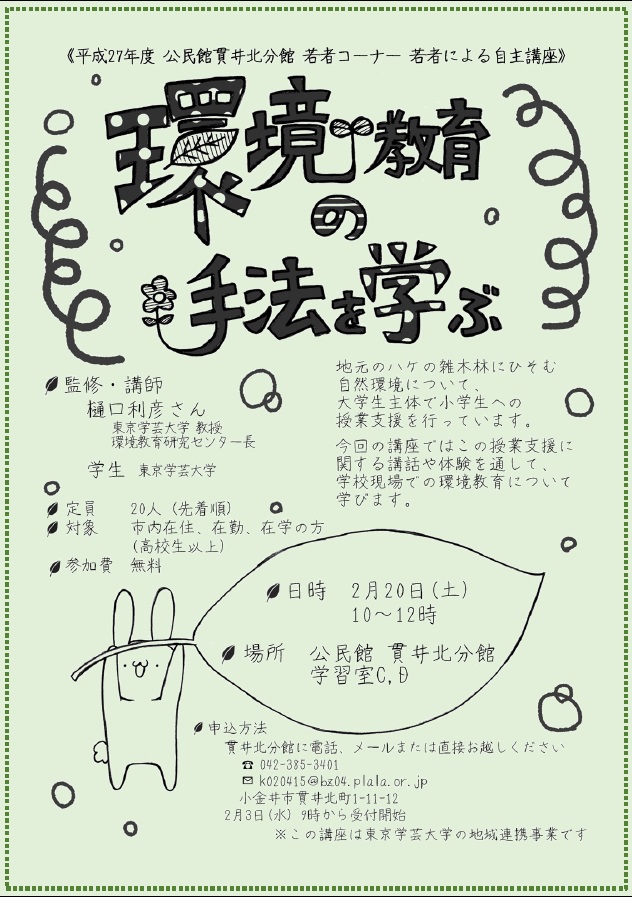 《平成27年度 公民館貫井北分館 若者コーナー 若者による自主講座》
環境教育
の
手法を学ぶ
監修・講師
樋口利彦さん
東京学芸大学 教授
環境教育研究センター長
学生 東京学芸大学
定員 20人 (先着順)
対象 市内在住、在勤、在学の方
(高校生以上)
参加費 無料
地元のハケの雑木林にひそむ
自然環境について、
大学生主体で小学生への
授業支援を行っています。
今回の講座ではこの授業支援に
関する講話や体験を通して、
学校現場での環境教育について
学びます。
日時 2月20日(土)
10～12時
場所 公民館 貫井北分館
学習室C,D
申込方法
貫井北分館に電話、メールまたは直接お越しください
☎ 042-385-3401
✉ k020415@bz04.plala.or.jp
小金井市貫井北町1-11-12
2月3日(水) 9時から受付開始
※この講座は東京学芸大学の地域連携事業です